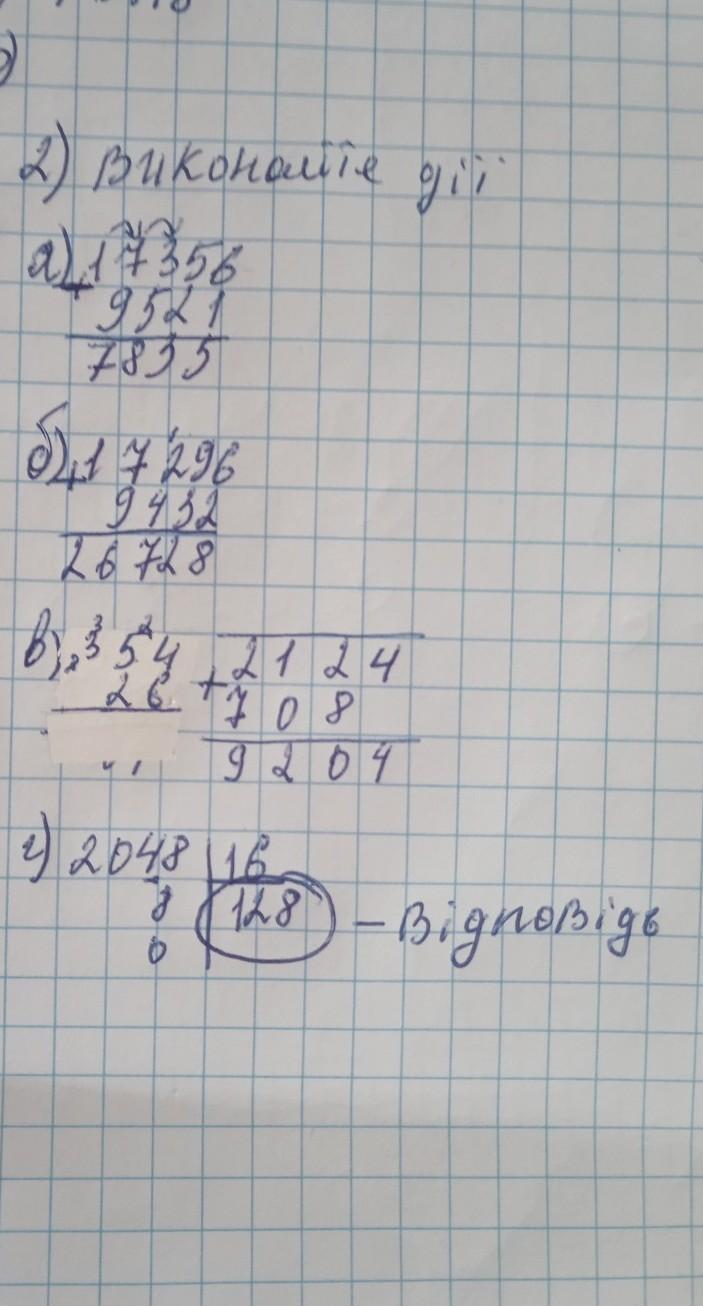 2) Виконайте дії
а) 17356
+ 9521
7835
б) 17296
+ 9432
26728
в) 354
26
2124
+ 708
9204
г) 2048 | 16
8 | 128 – Відповідь
0